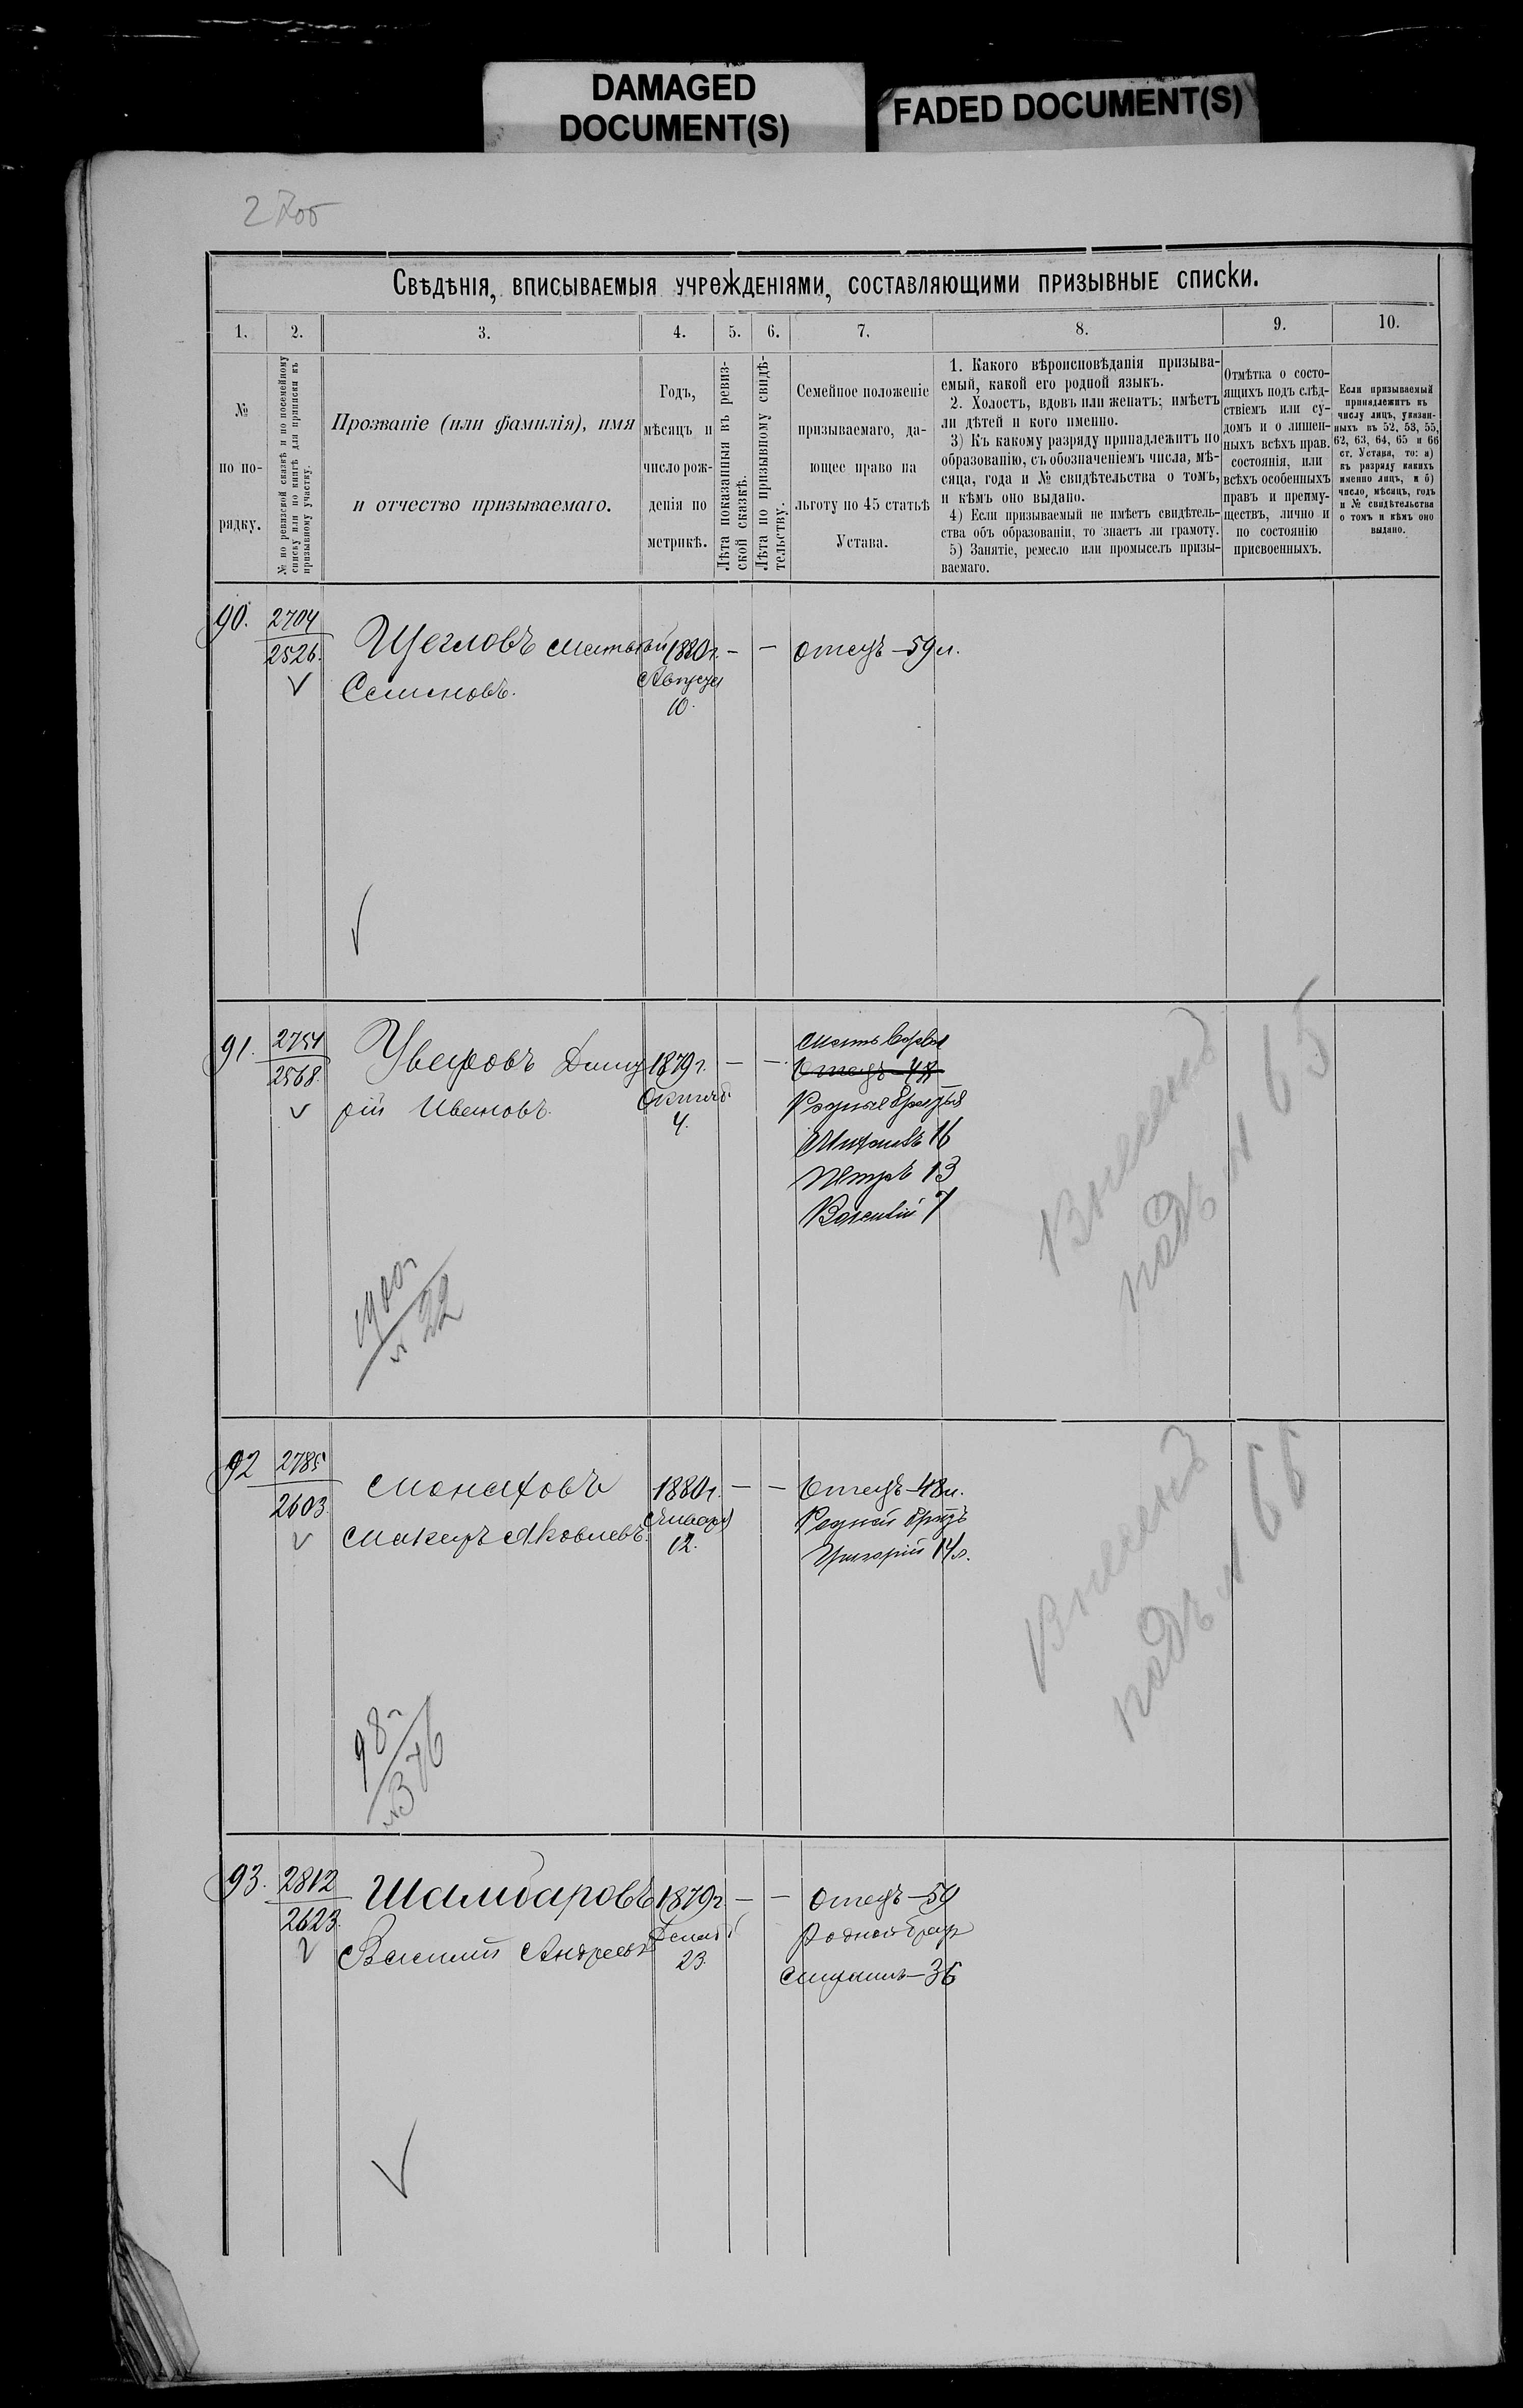 DAMAGED
DOCUMENT(S)
FADED DOCUMENT(S)
Свѣдѣнія, вписываемыя учрежденіями, составляющими призывные списки.
1. 2. 3. 4. 5. 6. 7. 8. 9. 10.
№
по по-
рядку.
№ по ревизской сказкѣ и по посемейному
списку или по книгѣ для приписки къ
призывному участку.
Прозваніе (или фамилія), имя
и отчество призываемаго.
Годъ,
мѣсяцъ и
число рож-
денія по
метрикѣ.
Лѣта показанныя въ ревиз-
ской сказкѣ.
Лѣта по призывному свидѣ-
тельству.
Семейное положеніе
призываемаго, да-
ющее право на
льготу по 45 статьѣ
Устава.
1. Какого вѣроисповѣданія призыва-
емый, какой его родной языкъ.
2. Холостъ, вдовъ или женатъ; имѣетъ
ли дѣтей и кого именно.
3) Къ какому разряду принадлежитъ по
образованію, съ обозначеніемъ числа, мѣ-
сяца, года и № свидѣтельства о томъ,
и кѣмъ оно выдано.
4) Если призываемый не имѣетъ свидѣтель-
ства объ образованіи, то знаетъ ли грамоту.
5) Занятіе, ремесло или промыселъ призы-
ваемаго.
Отмѣтка о состо-
ящихъ подъ слѣд-
ствіемъ или су-
домъ и о лишен-
ныхъ всѣхъ прав.
состоянія, или
всѣхъ особенныхъ
правъ и преиму-
ществъ, лично и
по состоянію
присвоенныхъ.
Если призываемый
принадлежитъ къ
числу лицъ, указан-
ныхъ въ 52, 53, 55,
62, 63, 64, 65 и 66
ст. Устава, то: а)
къ разряду какихъ
именно лицъ, и б)
число, мѣсяцъ, годъ
и № свидѣтельства
о томъ и кѣмъ оно
выдано.
90. 2704 Щегловъ Матвѣй 1880 г. — — Отецъ — 59 л.
2526. Семеновъ. Августа
10.
91. 2751 Уваровъ Дмит 1879 г. — —
2568. рій Ивановъ. Октяб
4.
Отецъ 47
Родные братья
16
Петръ 13
Василій 7
Внесенъ
подъ № 65
1900 г
№ 22
92 2785 Монаховъ 1880 г. — — Отецъ — 48 л.
2603. Макаръ Яковлевъ. Января
12.
Родной братъ
Григорій 14 л.
Внесенъ
подъ № 66
98 г
№ 376
93. 2812 Шамбаровъ 1879 г. — — Отецъ — 59
2623. Василій Андреевъ Декаб
23.
Родной братъ
— 36